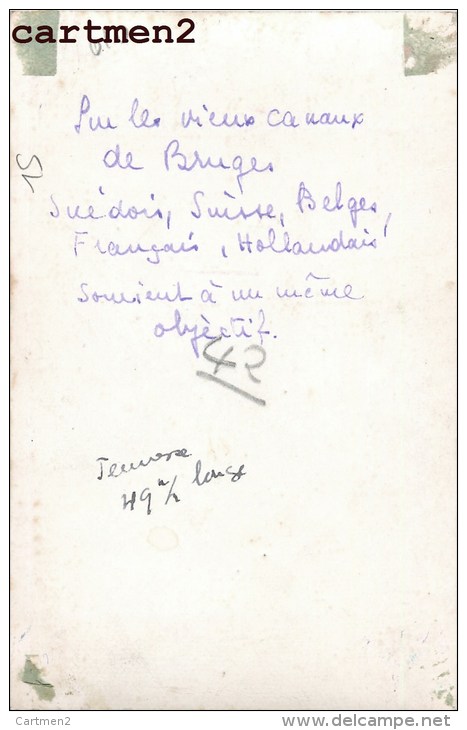 cartmen2
Sur les vieux canaux
de Bruges
Suédois, Suisse, Belges,
Français, Hollandais
sourient à un même
objectif.
42
long
Cartmen2
www.delcampe.net